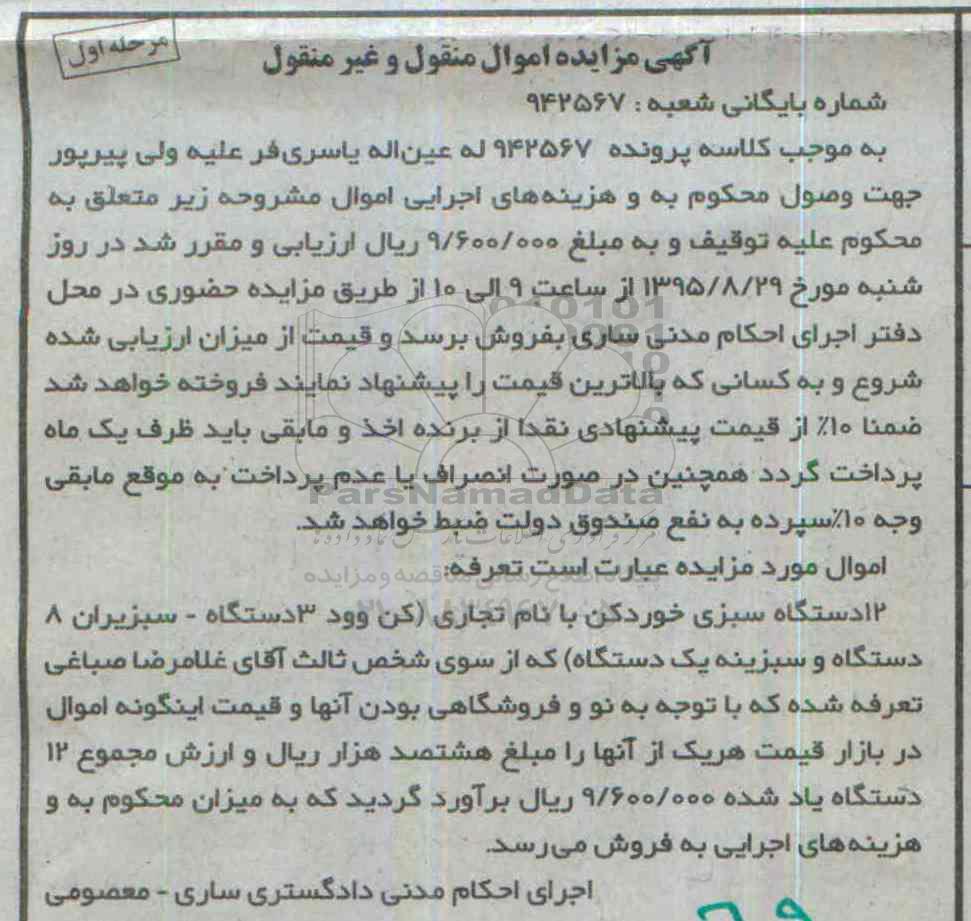 مرحله اول
آگهی مزایده اموال منقول و غیر منقول
شماره بایگانی شعبه : ۹۴۲۵۶۷
به موجب کلاسه پرونده ۹۴۲۵۶۷ له عین‌اله یاسری‌فر علیه ولی پیرپور
جهت وصول محکوم به و هزینه‌های اجرایی اموال مشروحه زیر متعلق به
محکوم علیه توقیف و به مبلغ ۹/۶۰۰/۰۰۰ ریال ارزیابی و مقرر شد در روز
شنبه مورخ ۱۳۹۵/۸/۲۹ از ساعت ۹ الی ۱۰ از طریق مزایده حضوری در محل
دفتر اجرای احکام مدنی ساری بفروش برسد و قیمت از میزان ارزیابی شده
شروع و به کسانی که بالاترین قیمت را پیشنهاد نمایند فروخته خواهد شد
ضمنا ۱۰٪ از قیمت پیشنهادی نقدا از برنده اخذ و مابقی باید ظرف یک ماه
پرداخت گردد همچنین در صورت انصراف یا عدم پرداخت به موقع مابقی
ParsNamadData
وجه ۱۰٪سپرده به نفع صندوق دولت ضبط خواهد شد.
اموال مورد مزایده عبارت است تعرفه:
۱۲دستگاه سبزی خوردکن با نام تجاری (کن وود ۳دستگاه - سبزیران ۸
دستگاه و سبزینه یک دستگاه) که از سوی شخص ثالث آقای غلامرضا صباغی
تعرفه شده که با توجه به نو و فروشگاهی بودن آنها و قیمت اینگونه اموال
در بازار قیمت هریک از آنها را مبلغ هشتصد هزار ریال و ارزش مجموع ۱۲
دستگاه یاد شده ۹/۶۰۰/۰۰۰ ریال برآورد گردید که به میزان محکوم به و
هزینه‌های اجرایی به فروش می‌رسد.
اجرای احکام مدنی دادگستری ساری - معصومی